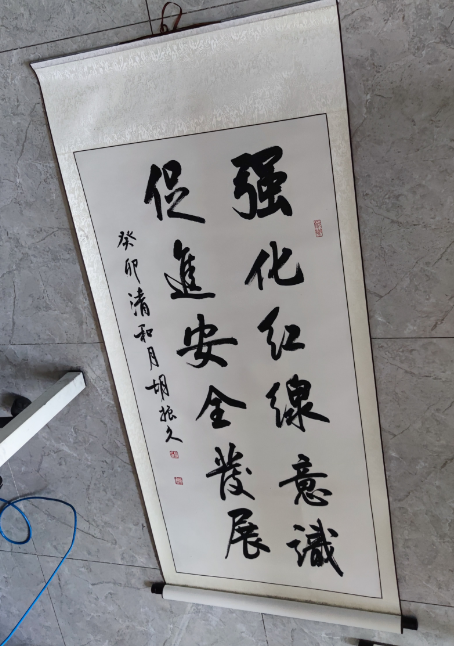 强化红線意識
促進安全發展
癸卯清和月胡振久